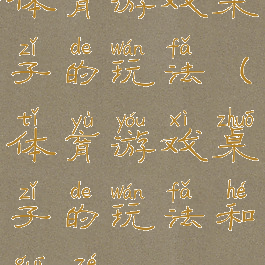 体育游戏桌
zǐ de wán fǎ
子的玩法（
tǐ yù yóu xì zhuō
体育游戏桌
zǐ de wán fǎ hé
子的玩法和
guī zé